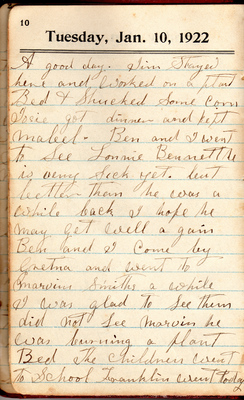 10
Tuesday, Jan. 10, 1922
A good day. Jim Stayed
here and Worked on a plant
Bed & Shucked Some Corn
Josie got dinner and kept
Mabell. Ben and I went
to See Lonnie Bennett he
is very Sick yet. but
better than he was a
while back I hope he
may get well a gain
Ben and I Come by
Gretna and went to
Marvins Smiths a while
I was glad to See them
did not See Marvin he
was burning a plant
Bed The Childrens went
to School Franklin went today